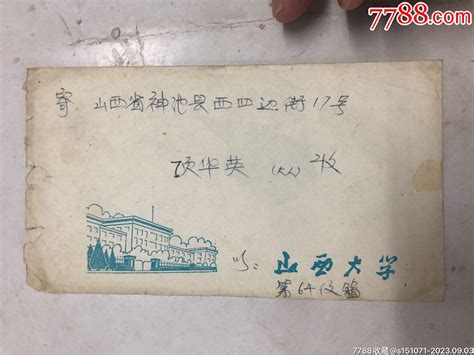 7788.com
寄. 山西省神池县西四边街17号
项华英 (大人) 收
山西大学
第64仪箱
7788收藏@s151071-2023.09.03